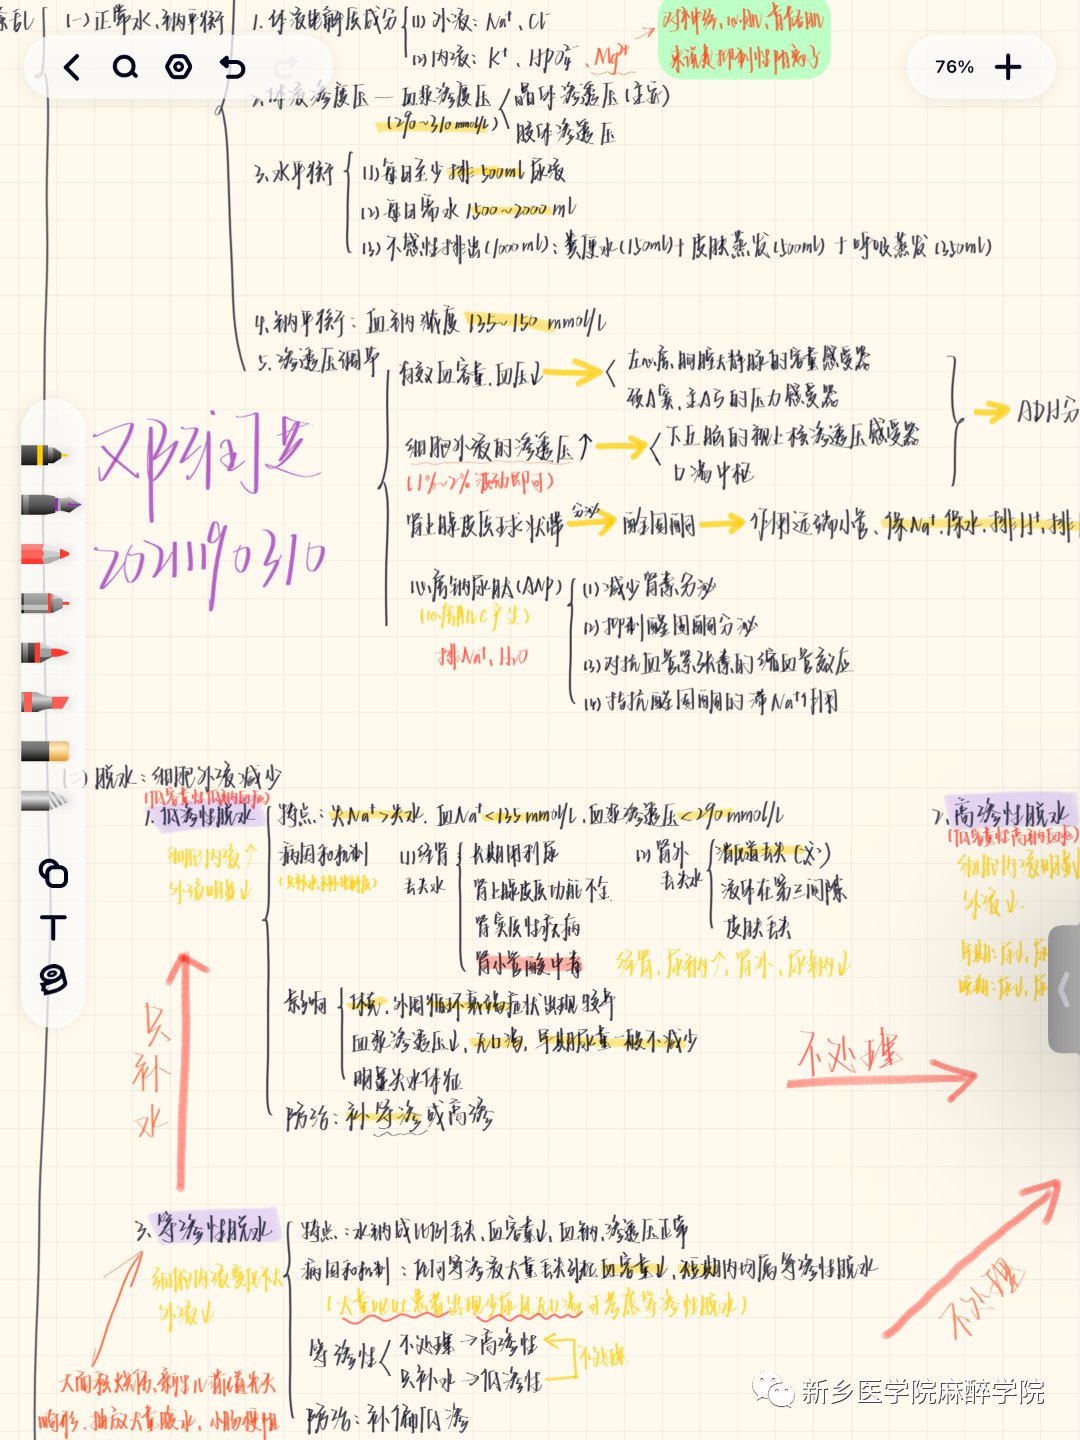 (一)正常水、钠平衡
1.体液电解质成分
(1)外液：Na⁺、Cl⁻
(2)内液：K⁺、HPO₄²⁻、Mg²⁺
对神经、心肌、骨骼肌
来说是抑制性阳离子
76%
2.体液渗透压 — 血浆渗透压
(290~310mmol/L)
晶体渗透压(主要)
胶体渗透压
3.水平衡
(1)每日至少排500ml尿液
(2)每日需水1500~2000ml
(3)不感性排出(1000ml)：粪便水(150ml)+皮肤蒸发(500ml)+呼吸蒸发(350ml)
4.钠平衡：血钠浓度135~150mmol/L
5.渗透压调节
有效血容量、血压↓
左心房、胸腔大静脉的容量感受器
颈A窦、主A弓的压力感受器
ADH分
细胞外液的渗透压↑
(1%~2%波动即可)
下丘脑的视上核渗透压感受器
口渴中枢
肾上腺皮质球状带
分泌
醛固酮
作用远端小管、保Na⁺、保水、排H⁺、排
心房钠尿肽(ANP)
(心房ANC产生)
排Na⁺、H₂O
(1)减少肾素分泌
(2)抑制醛固酮分泌
(3)对抗血管紧张素的缩血管效应
(4)拮抗醛固酮的滞Na⁺作用
邓润芝
2021190310
(二)脱水：细胞外液减少
(低容量性低钠血症)
1.低渗性脱水
细胞内液↑
外液明显↓
特点：失Na⁺>失水、血Na⁺<135mmol/L、血浆渗透压<290mmol/L
病因和机制
(1)经肾
丢失水
长期用利尿
肾上腺皮质功能不全
肾实质性疾病
肾小管酸中毒
(2)肾外
丢失水
消化道丢失(父)
液体在第三间隙
皮肤丢失
经肾、尿钠↑，肾外、尿钠↓
影响
休克、外周循环衰竭症状出现较早
血浆渗透压↓、无口渴、早期尿量一般不减少
明显失水体征
防治：补等渗或高渗
2.高渗性脱水
(低容量性高钠血症)
细胞内液明显
外液↓
早期：尿↓、尿
晚期：尿↓、尿
只补水
不处理
不处理
3.等渗性脱水
细胞内液变化不大
外液↓
特点：水钠成比例丢失、血容量↓、血钠、渗透压正常
病因和机制：任何等渗液大量丢失引起血容量↓、短期内均属等渗性脱水
(大量呕吐患者出现少尿且无口渴可考虑等渗性脱水)
等渗性
不处理→高渗性
只补水→低渗性
不处理
防治：补偏低渗
大面积烧伤、新生儿消化道先天
畸形、抽放大量腹水、小肠梗阻
新乡医学院麻醉学院